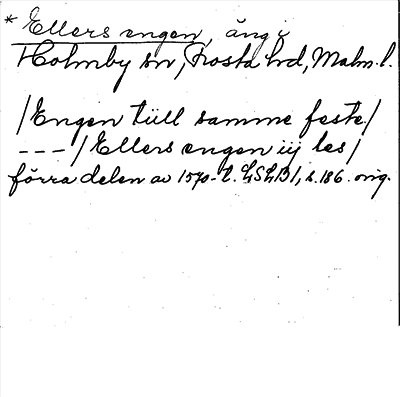 * Ellers engen, äng i
Holmby sn, Frosta hd, Malm. l.
/Engen tiill samme feste/
--- /Ellers engen iij les/
förra delen av 1570-t. LSLB 1, s. 186. orig.